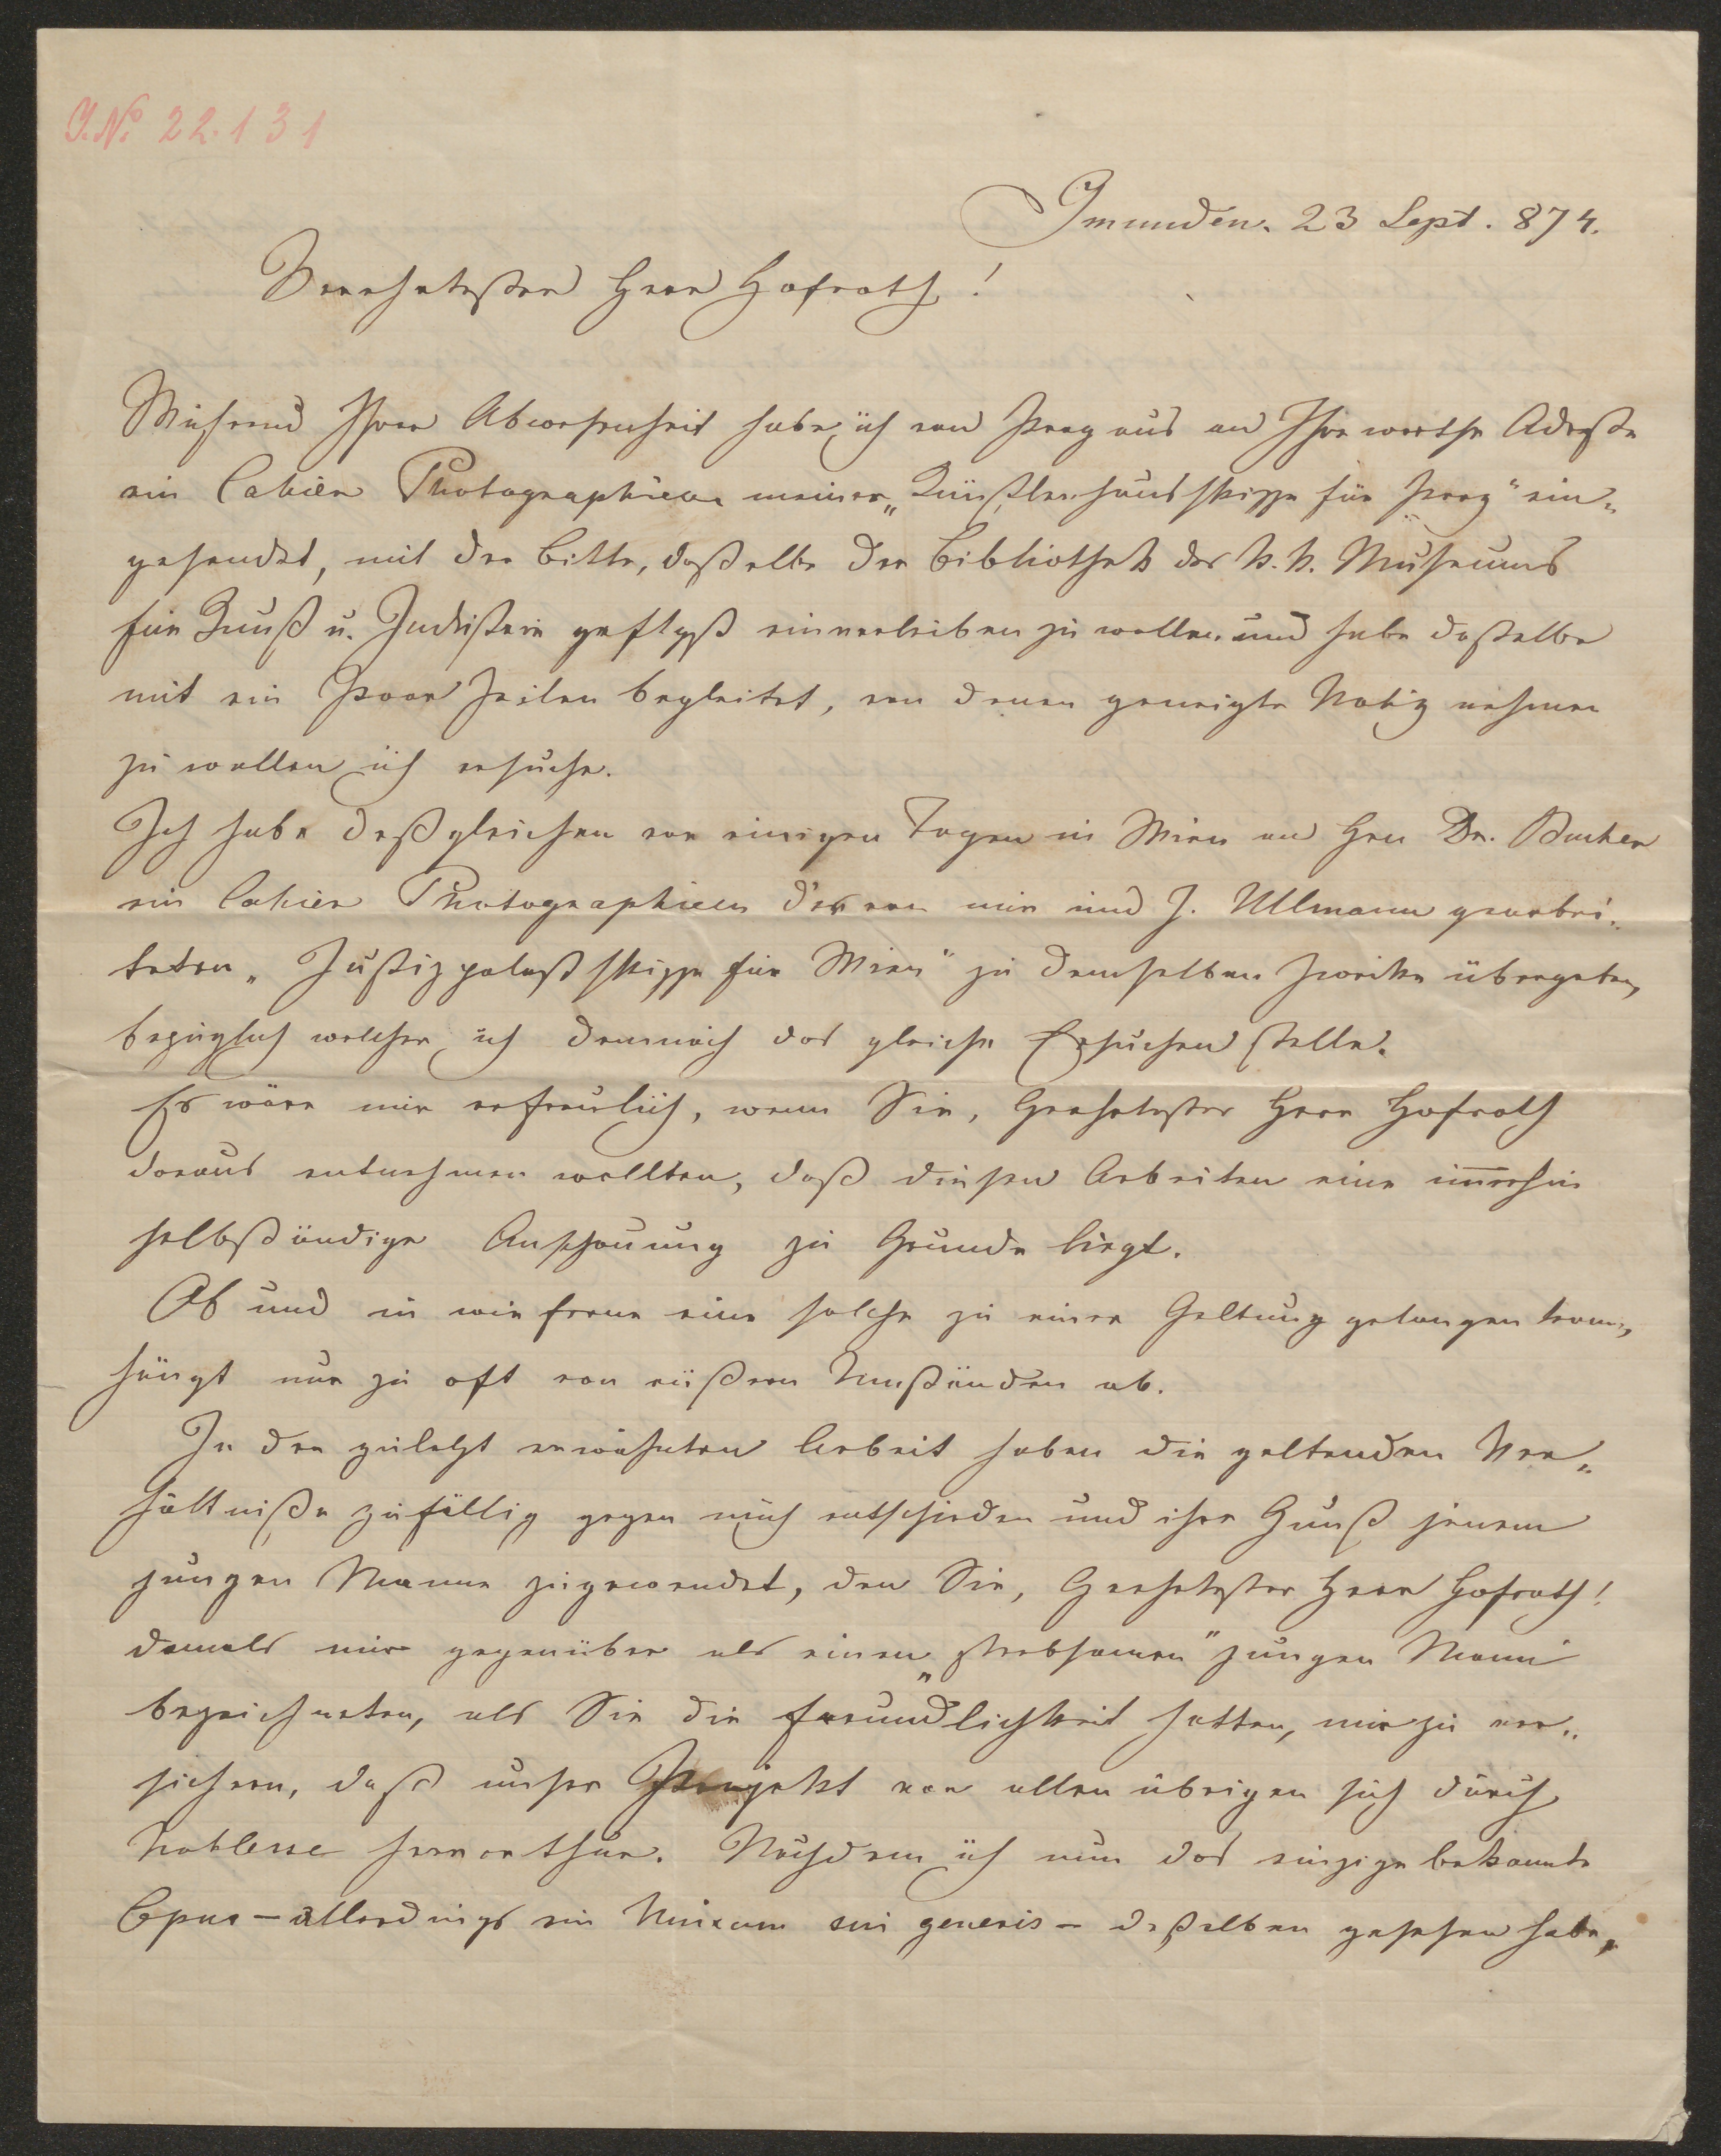 J. No 22.131
Gmunden. 23 Sept. 874.
Verehrtester Herr Hofrath!
Während Ihrer Abwesenheit habe ich von Prag aus an Ihre werthe Adreße
ein Cahier Photographieen meiner „Künstlerhausskizze für Prag" ein„
gesendet, mit der Bitte, dasselbe der Bibliothek des k. k. Museums
für Kunst u. Industrie gefligst einverleiben zu wollen und habe dasselbe
mit ein Paar Zeilen begleitet, von denen geneigte Notiz nehmen
zu wollen ich ersuche.
Ich habe deßgleichen vor einigen Tagen in Wien an Hrn Dr. Bucher
ein Cahier Photographieen der von mir und J. Ullmann gearbei„
teten „Justizpalastskizze für Wien" zu demselben Zwecke übergeben,
bezüglich welcher ich demnach das gleiche Ersuchen stelle.
Es wäre mir erfreulich, wenn Sie, Geehrtester Herr Hofrath
daraus entnehmen wollten, daß diesen Arbeiten eine im̄erhin
selbständige Anschauung zu Grunde liegt.
Ob und in wie ferne eine solche zu einer Geltung gelangen kann,
hängt nur zu oft von äußern Umständen ab.
In der zuletzt erwähnten Arbeit haben die geltenden Ver„
hältniße zufällig gegen mich entschieden und ihre Gunst jenem
jungen Manne zugewendet, den Sie, Geehrtester Herr Hofrath!
damals mir gegenüber als einen „strebsamen" jungen Mann
bezeichneten, als Sie die Freundlichkeit hatten, mir zu ver„
sichern, daß unser Projekt vor allen übrigen sich durch
Noblesse hervorthue. Nachdem ich nun das einzige bekannte
Opus – allerdings ein Unicum sui generis – deßelben gesehen habe,